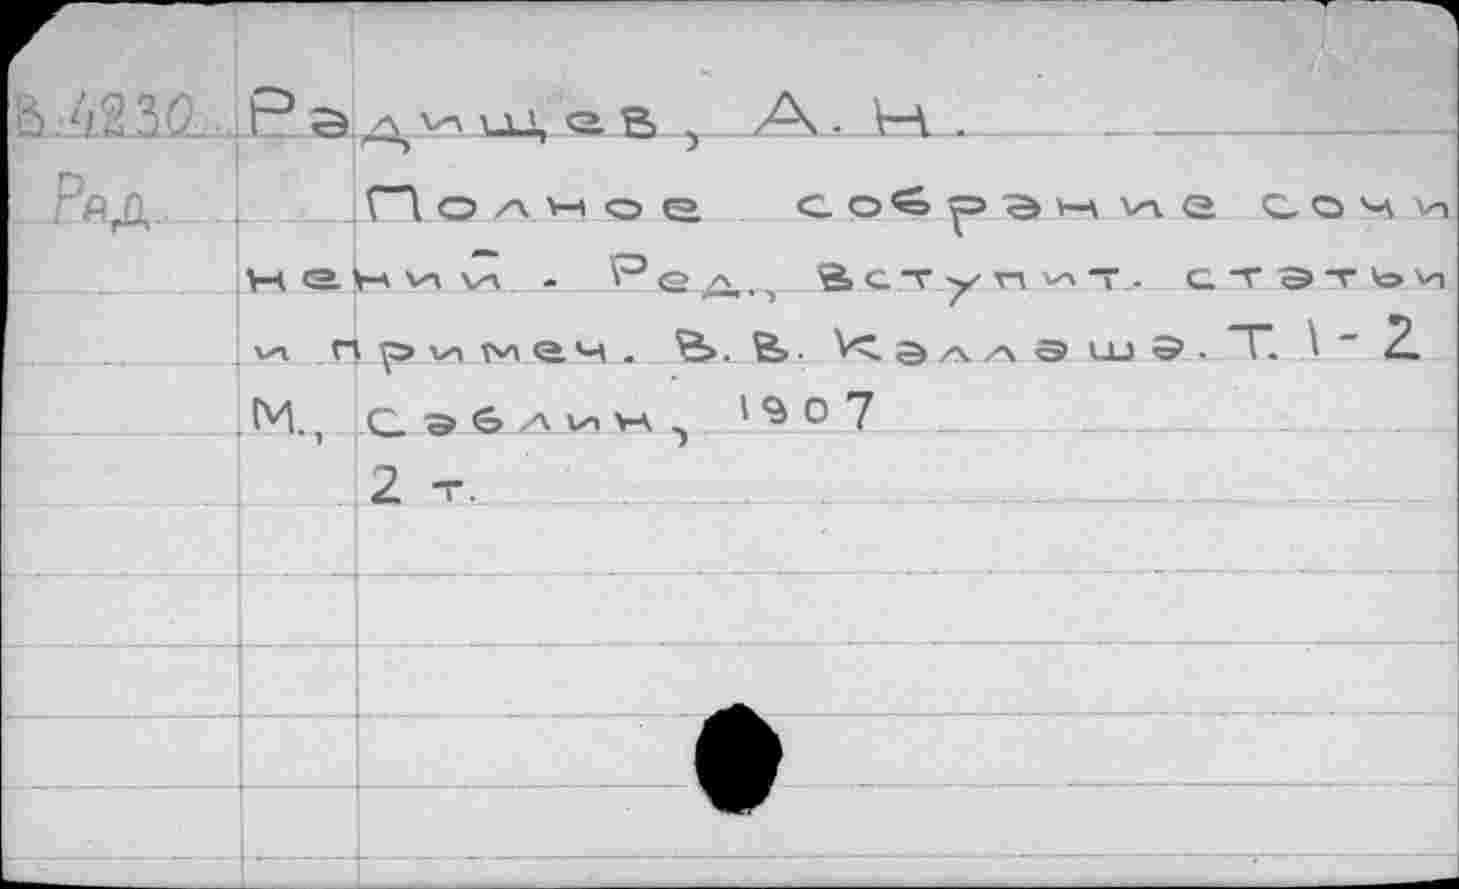 В.4230. Радищев, А. Н.
Рад. Полное собрание сочи
нений - Ред., вступит. статьи
и примеч. В. В. Каллаша. Т. 1-2
М., Саблин, 1907
2 т.